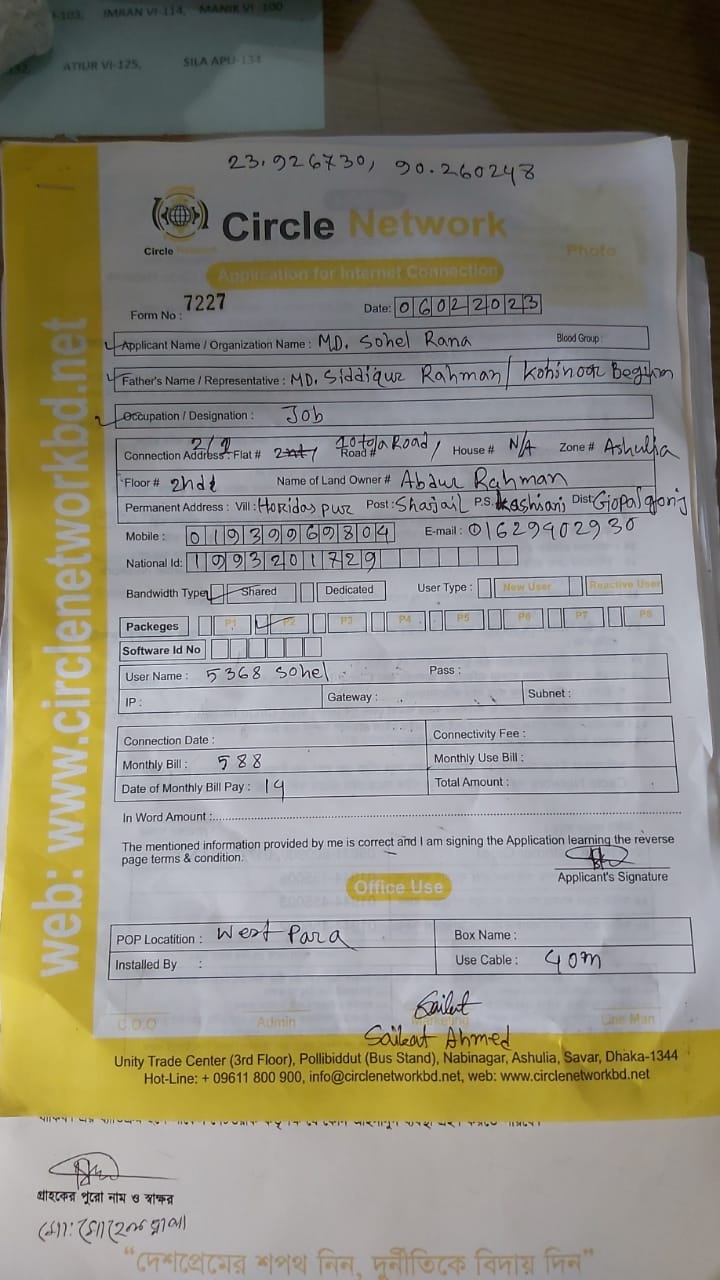 -103, IMRAN VI-114, MANIK VI -100
ATIUR VI-125, SILA APU-134
23.926730, 90.260248
Circle Network
Circle Network
Photo
Application for Internet Connection
Form No : 7227 Date: 06022023
Applicant Name / Organization Name : MD. Sohel Rana Blood Group :
Father's Name / Representative : MD. Siddiqur Rahman / Kohinoor Begum
Occupation / Designation : Job
Connection Address: Flat # Road # 10 tola Road, House # N/A Zone # Ashulia
Floor # 2nd Name of Land Owner # Abdur Rahman
Permanent Address : Vill : Horidaspur Post : Sharjail P.S. kashiani Dist: Gopalgonj
Mobile : 01939969804 E-mail : 01629402930
National Id: 1993201729
Bandwidth Type Shared Dedicated User Type : New User Reactive User
Packeges P1 P2 P3 P4 P5 P6 P7 P8
Software Id No
User Name : 5368 Sohel Pass :
IP : Gateway : Subnet :
Connection Date : Connectivity Fee :
Monthly Bill : 588 Monthly Use Bill :
Date of Monthly Bill Pay : 14 Total Amount :
In Word Amount :
The mentioned information provided by me is correct and I am signing the Application learning the reverse
page terms & condition.
Applicant's Signature
Office Use
POP Locatition : West Para Box Name :
Installed By : Use Cable : 40m
Saikat
C.O.O Admin Marketing Line Man
Saikat Ahmed
Unity Trade Center (3rd Floor), Pollibiddut (Bus Stand), Nabinagar, Ashulia, Savar, Dhaka-1344
Hot-Line: + 09611 800 900, info@circlenetworkbd.net, web: www.circlenetworkbd.net
web: www.circlenetworkbd.net
গ্রাহকের পুরো নাম ও স্বাক্ষর
মো: সোহেল রানা
“দেশপ্রেমের শপথ নিন, দুর্নীতিকে বিদায় দিন”